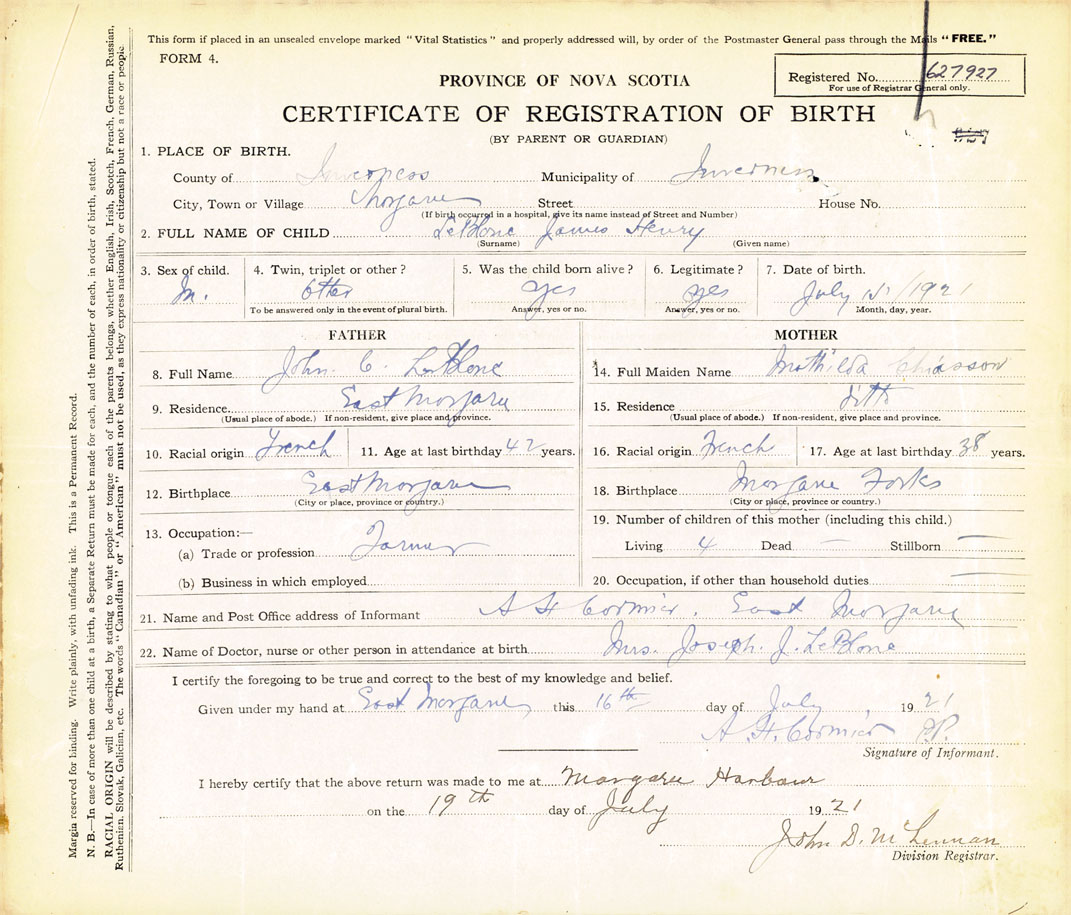 This form if placed in an unsealed envelope marked "Vital Statistics" and properly addressed will, by order of the Postmaster General pass through the Mails "FREE."
FORM 4.
Registered No. 627927
For use of Registrar General only.
PROVINCE OF NOVA SCOTIA
CERTIFICATE OF REGISTRATION OF BIRTH
(BY PARENT OR GUARDIAN)
1. PLACE OF BIRTH.
County of Inverness Municipality of Inverness
City, Town or Village Street House No.
(If birth occurred in a hospital, give its name instead of Street and Number)
2. FULL NAME OF CHILD LeBlonc James Henry
(Surname) (Given name)
3. Sex of child. 4. Twin, triplet or other? 5. Was the child born alive? 6. Legitimate? 7. Date of birth.
M. yes yes July 1921
To be answered only in the event of plural birth. Answer, yes or no. Answer, yes or no. Month, day, year.
FATHER MOTHER
8. Full Name John C. LeBlonc 14. Full Maiden Name Mathilda Chiasson
9. Residence East 15. Residence ditto
(Usual place of abode.) If non-resident, give place and province. (Usual place of abode.) If non-resident, give place and province.
10. Racial origin French 11. Age at last birthday 42 years. 16. Racial origin French 17. Age at last birthday 38 years.
12. Birthplace East 18. Birthplace Forks
(City or place, province or country.) (City or place, province or country.)
13. Occupation:— 19. Number of children of this mother (including this child.)
(a) Trade or profession Farmer Living 4 Dead — Stillborn —
(b) Business in which employed 20. Occupation, if other than household duties —
21. Name and Post Office address of Informant A H Cormier. East
22. Name of Doctor, nurse or other person in attendance at birth Mrs. Joseph. J. LeBlonc
I certify the foregoing to be true and correct to the best of my knowledge and belief.
Given under my hand at East this 16th day of July, 1921
A. H. Cormier P.P.
Signature of Informant.
I hereby certify that the above return was made to me at Margaree Harbour
on the 19th day of July 1921
John D. McLennan
Division Registrar.
Margin reserved for binding. Write plainly, with unfading ink. This is a Permanent Record.
N. B.—In case of more than one child at a birth, a Separate Return must be made for each, and the number of each, in order of birth, stated.
RACIAL ORIGIN will be described by stating to what people or tongue each of the parents belongs, whether English, Irish, Scotch, French, German, Russian,
Ruthenian, Slovak, Galician, etc. The words "Canadian" or "American" must not be used, as they express nationality or citizenship but not a race or people